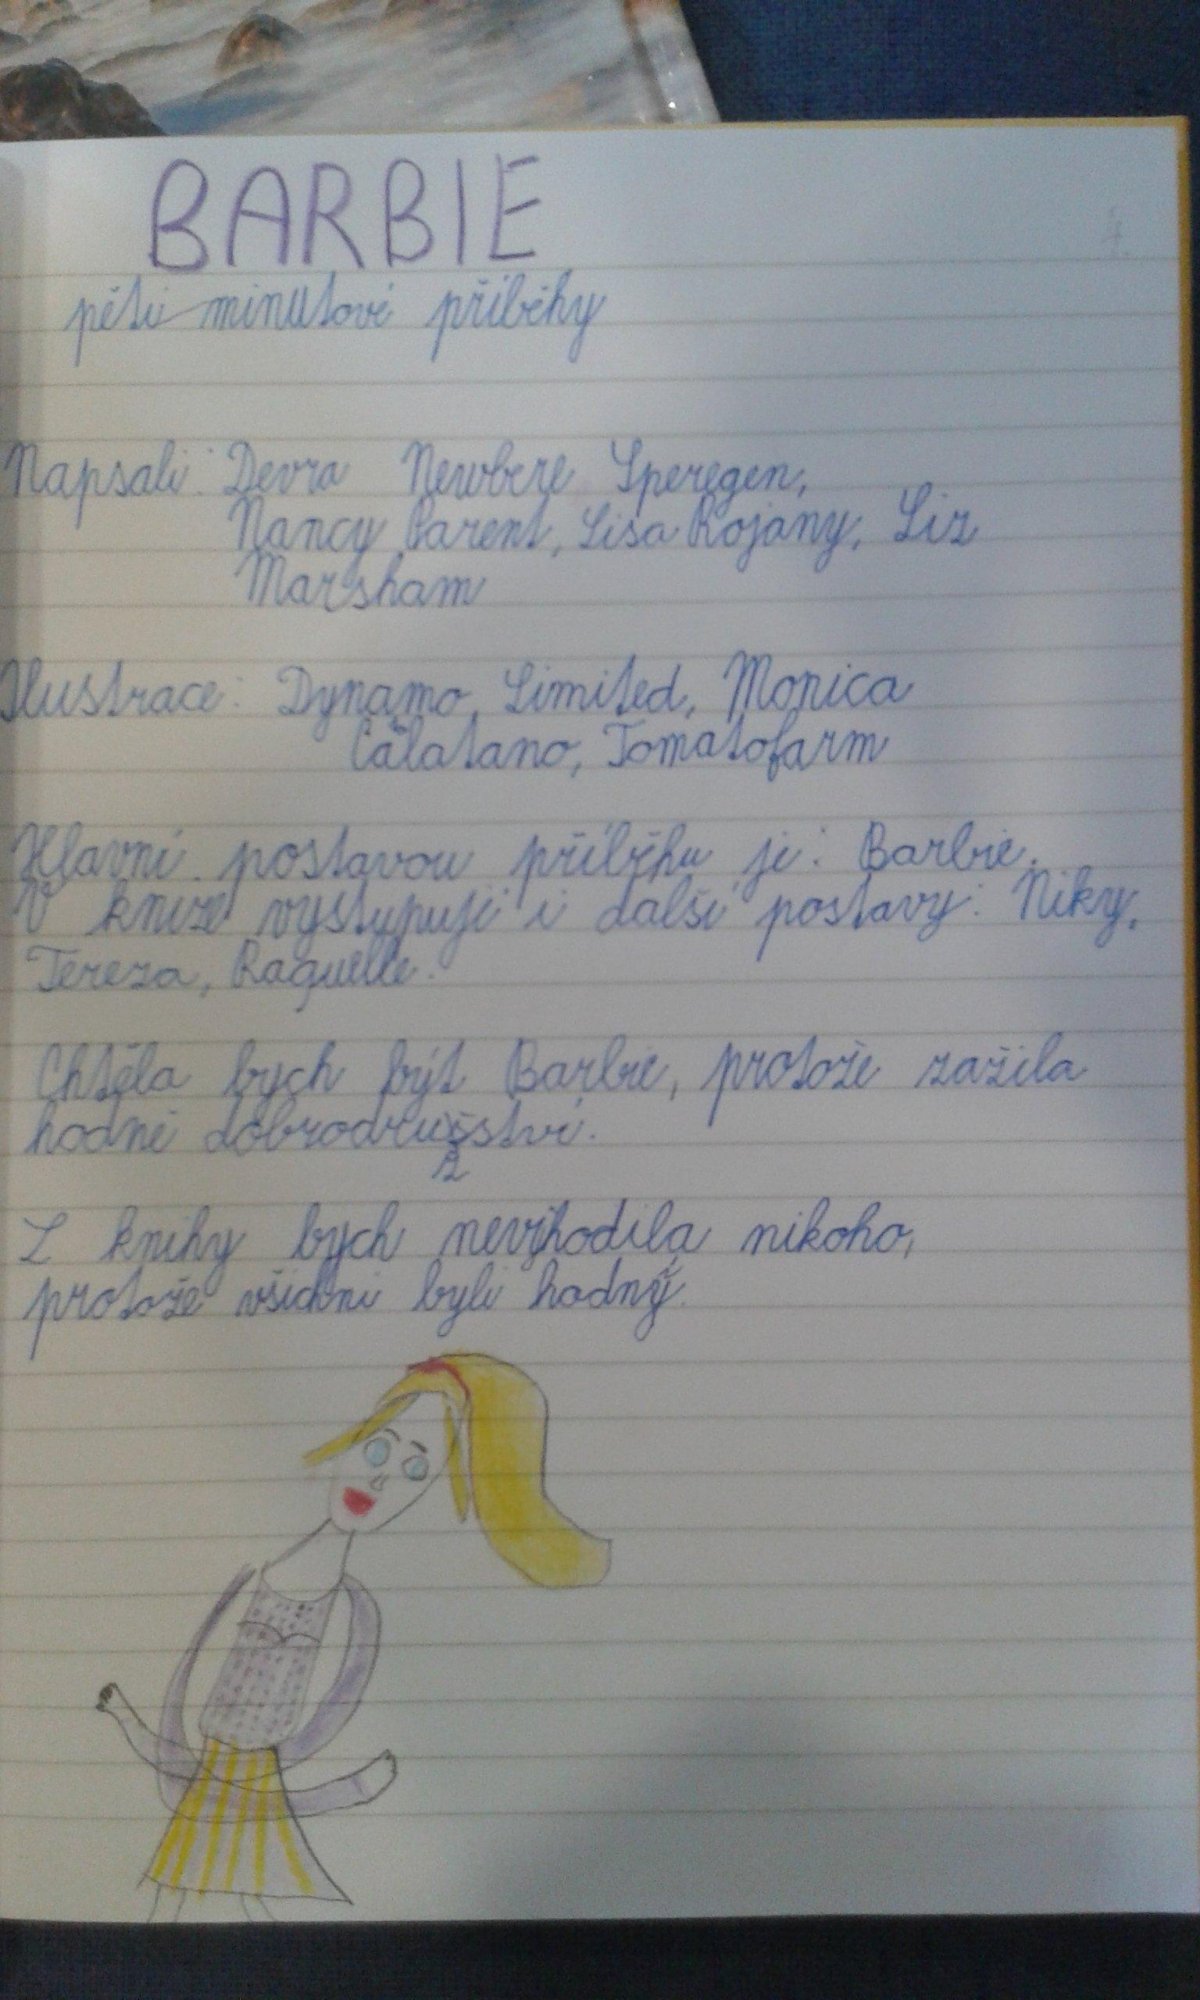 BARBIE
pěti minutové příběhy
Napsali: Devra Newbere Speregen,
Nancy Parent, Lisa Rojany, Liz
Marsham
Ilustrace: Dynamo Limited, Monica
Catalano, Tomatofarm
Hlavní postavou příběhu je: Barbie.
V knize vystupují i další postavy: Niky,
Tereza, Raquelle.
Chtěla bych být Barbie, protože zažila
hodně dobrodružství.
Z knihy bych nevyhodila nikoho,
protože všichni byli hodný.